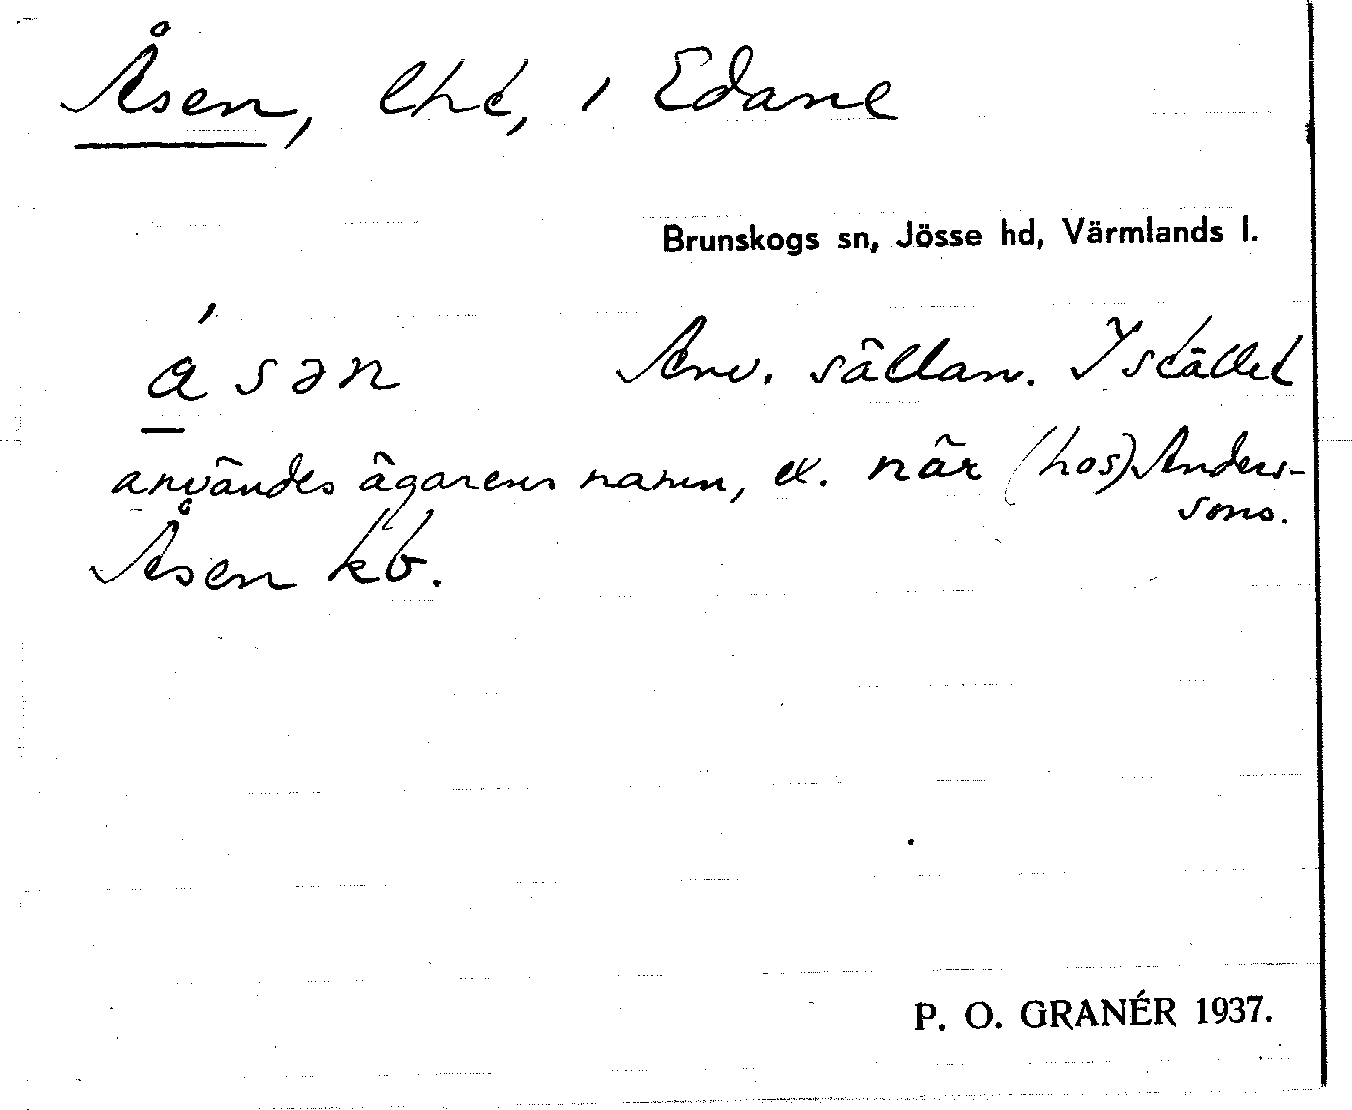 Åsen, lht, i Edane
Brunskogs sn, Jösse hd, Värmlands l.
ásən Anv. sällan. Istället
användes ägarens namn, ex. när (hos) Anders-
sons.
Åsen kb.
P. O. GRANÉR 1937.